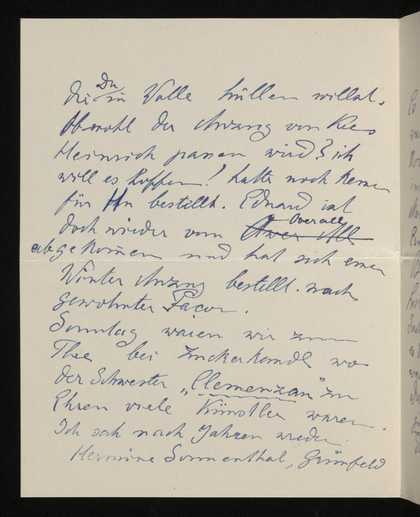 die Du in Wolle hüllen willst.
Obwohl der Anzug von
Heinrich passen wird? ich
will es hoffen! hatte noch keinen
für ihn bestellt. Eduard ist
doch wieder vom Overall
abgekommen und hat sich einen
Winter Anzug bestellt. nach
gewohnter Façon.
Sonntag waren wir zum
Thee bei Zuckerkandl wo
der Schwester „Clemenzau" zu
Ehren viele Künstler waren.
Ich sah nach Jahren wieder
Hermine Sonnenthal, Grünfeld